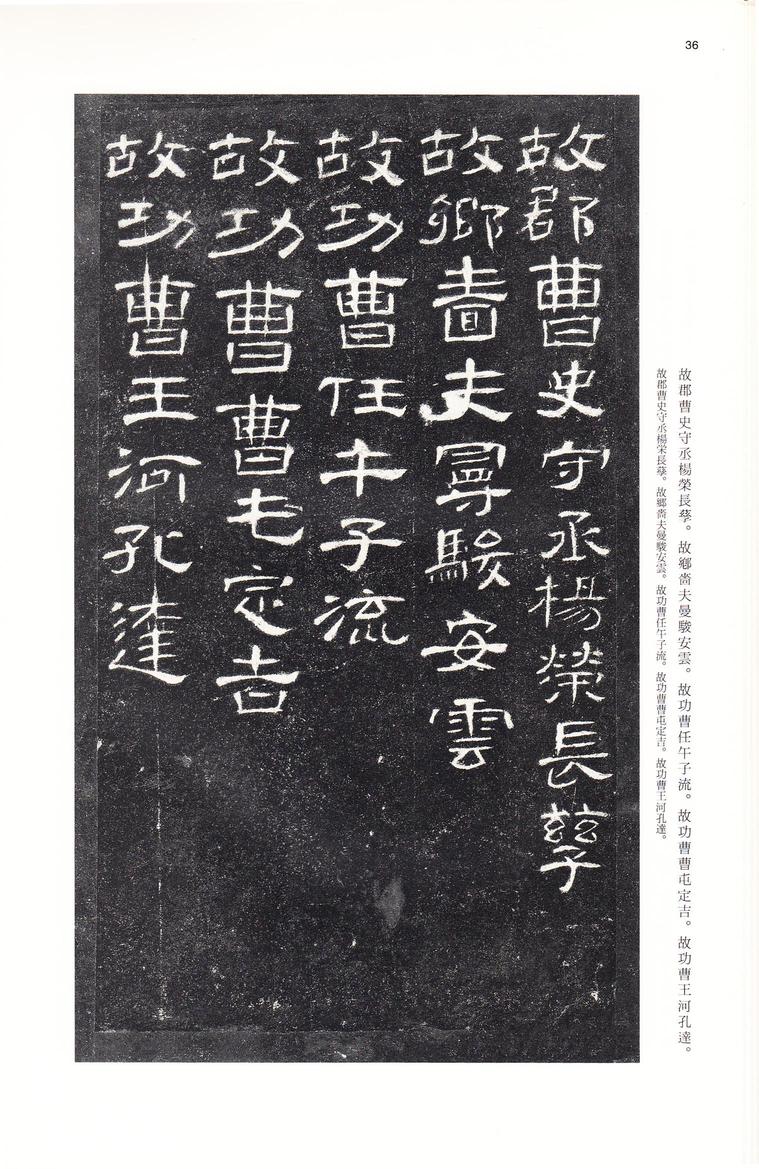 36
故郡曹史守丞楊榮長孳
故鄉啬夫曼駿安雲
故功曹任午子流
故功曹曹屯定吉
故功曹王河孔達
故郡曹史守丞楊榮長孳。故鄉啬夫曼駿安雲。故功曹任午子流。故功曹曹屯定吉。故功曹王河孔達。
故郡曹史守丞楊栄長孳。故郷啬夫曼駿安雲。故功曹任午子流。故功曹曹屯定吉。故功曹王河孔達。